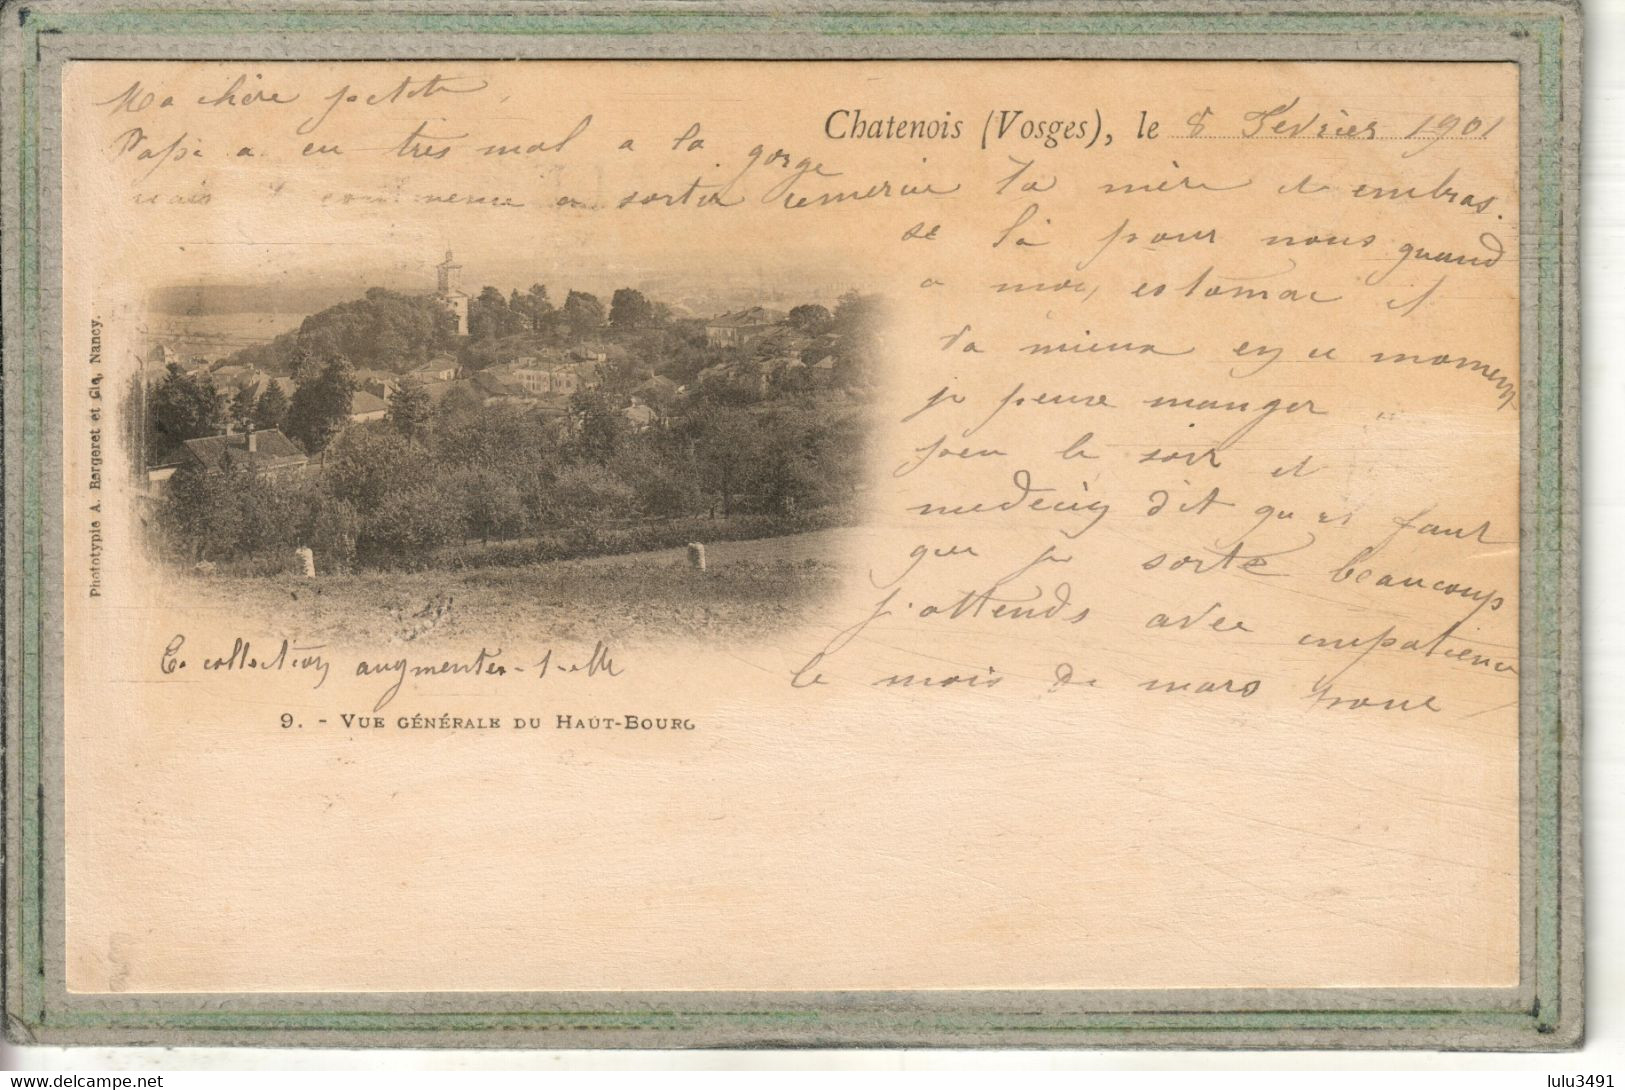 Ma chère petite
Chatenois (Vosges), le 8 Fevrier 1901
Papa a eu tres mal a la gorge
mais commence a sortir remercie ta mère et embras.
se là pour nous quand
a moi, estomac et
va mieux en ce moment
je peux manger
peu le soir et
medecin dit qu'il faut
que je sorte beaucoup
j'attends avec impatience
le mois de mars pour
Ta collection augmente-t-elle
9. - VUE GÉNÉRALE DU HAUT-BOURG
Phototypie A. Bergeret et Cie, Nancy.
lulu3491